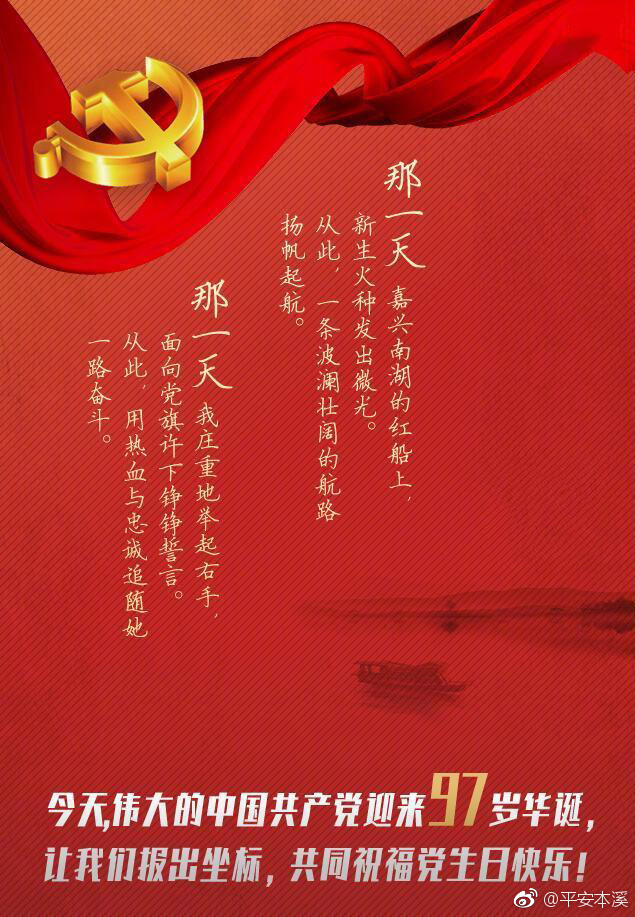 那一天 嘉兴南湖的红船上，
新生火种发出微光。
从此，一条波澜壮阔的航路
扬帆起航。
那一天 我庄重地举起右手，
面向党旗许下铮铮誓言。
从此，用热血与忠诚追随她
一路奋斗。
今天,伟大的中国共产党迎来97岁华诞，
让我们报出坐标，共同祝福党生日快乐！
@平安本溪